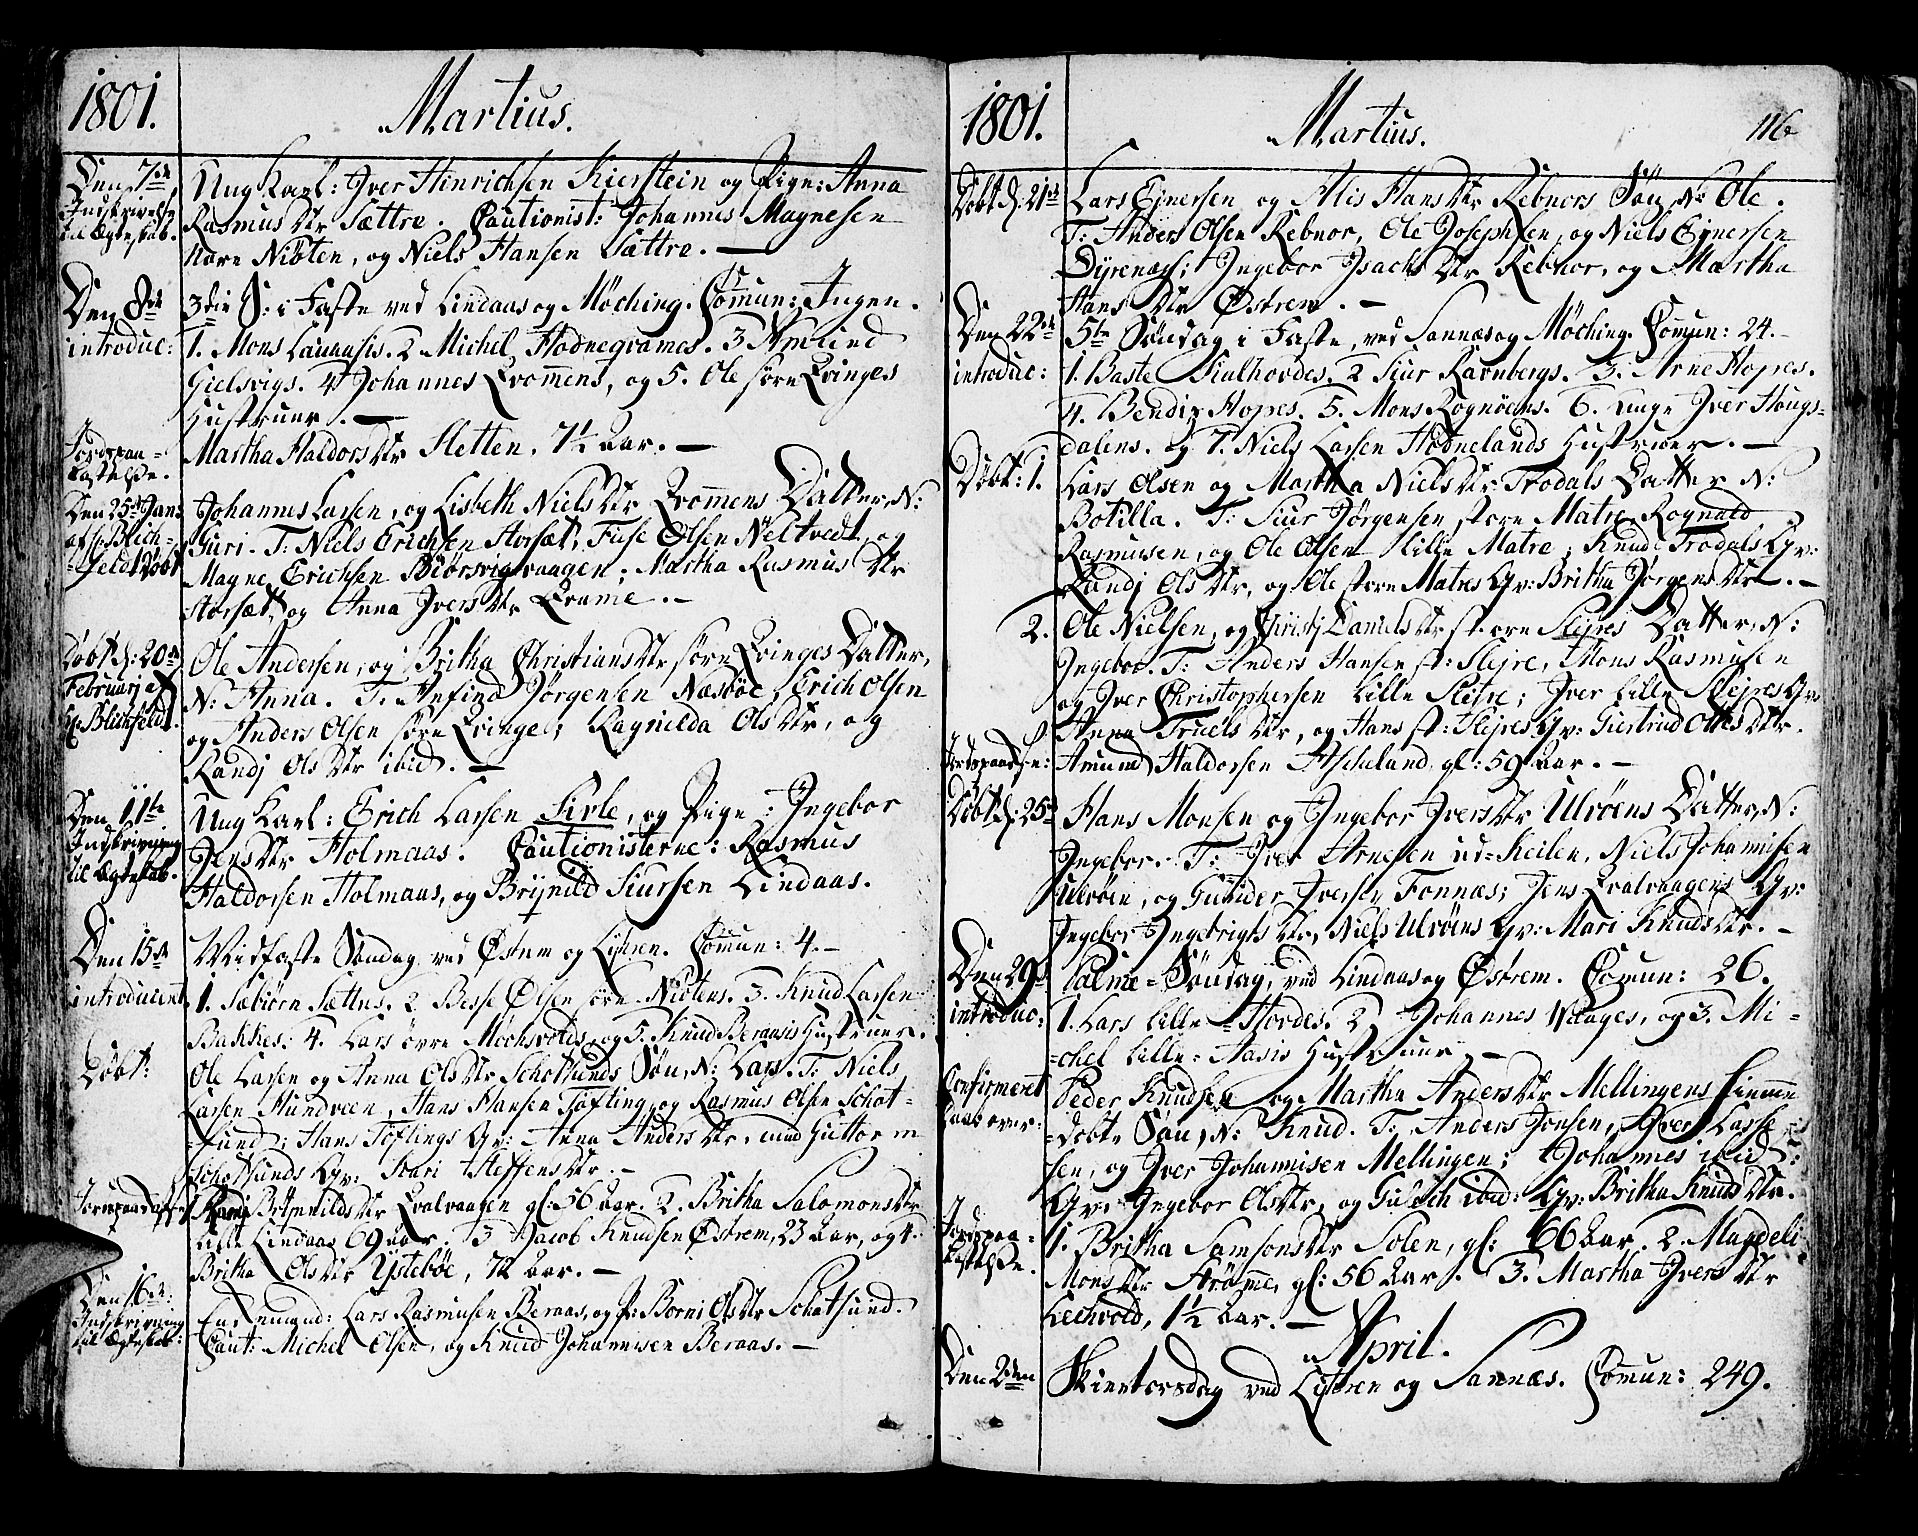 1801.
Martius.
Den 7de
Indskrivelse
til Ægteskab.
Ung Karl: Iver Hinrichsen Kierstein og Pige: Anna
Rasmus Dtr Sættre. Cautionist: Johannes Magnesen
Nore Nibten, og Niels Hansen Sættre. —
Den 8de
introduc:
3die S: i Faste ved Lindaas og Møching. Com̄un: Ingen.
1. Mons Lauaasis. 2 Michel Hodnegrames. 3 Amund
Gielsvigs. 4 Johannes Qvom̄ens, og 5. Ole søre Qvinges
Hustruer. —
Jordspaa-
kastelse.
Martha Haldors Dtr Sletten, 7½ Aar. —
Den 25de Janr
af Hr Blich-
feldt Døbt
Johannes Larsen, og Lisbeth Niels Dtr Qvom̄ens Datter, N:
Guri. T: Niels Erichsen Storsæt, Fuse Olsen Neltvedt, og
Magne Erichsen Biørsvigvaagen; Martha Rasmus Dtr
Storsæt, og Anna Ivers Dtr Qvame. —
Døbt d: 20de
Februarij af
Hr Blichfeldt.
Ole Andersen, og Britha Christians Dtr søre Qvinges Datter,
N: Anna. T: Anfind Jørgensen Næsbøe, Erich Olsen
og Anders Olsen søre Qvinge; Ragnilda Ols Dtr, og
Randj Ols Dtr ibid. —
Den 11te
Indskrivning
til Ægteskab.
Ung Karl: Erich Larsen Sirle, og Pige: Ingebor
Jens Dtr Holmaas. Cautionisterne: Rasmus
Haldorsen Holmaas, og Brynild Siursen Lindaas.
Den 15de
introducent
Midfaste Søndag ved Østrem og Lykren. Com̄un: 4. —
1. Sæbiørn Sættres. 2 Besse Olsen søre Nibtens. 3. Knud Larsen
Bakkes: 4. Lars øvre Mochsvolds, og 5. Knud Beraasis Hustruer.
Døbt:
Ole Larsen og Anna Ols Dtr Schotsunds Søn, N: Lars. T: Niels
Larsen Hundveen, Hans Hansen Tøfting, og Rasmus Olsen Schot-
sund; Hans Tøftings Qv: Anna Anders Dtr, og Guttorm
Schotsunds Qv: Kari Steffens Dtr. —
Jordspaakastelse
Randj Brynilds Dtr Qvalvaagen gl: 56 Aar. 2. Britha Salomons Dtr
Lille Lindaas 69 Aar. 3 Jacob Knudsen Østrem, 23 Aar, og 4.
Britha Ols Dtr Ystebøe, 72 Aar. —
Den 16de
Indskrivning
til Ægteskab:
Enkemand: Lars Rasmusen Beraas, og P: Borni Ols Dtr Schotsund.
Caut: Michel Olsen, og Knud Johannisen Beraas. —
1801.
Martius.
116
Døbt d: 21de
Lars Ejnersen og Alis Hans Dtr Rebnors Søn, N: Ole.
T: Anders Olsen Rebnor, Ole Josephsen, og Niels Ejnersen
Dyrenæs; Ingebor Isachs Dtr Rebnor, og Martha
Hans Dtr Østrem. —
Den 22de
introduc:
5te Søndag i Faste, ved Sannæs og Møching. Com̄un: 24. —
1. Baste Sialhovdes. 2 Siur Ravnbergs. 3. Arne Hopes.
4. Bendix Hopes. 5. Mons Rognøens. 6. unge Iver Hougs-
dalens. og 7. Niels Larsen Hodnelands Hustruer. —
Døbt: 1.
Lars Olsen og Martha Niels Dtr Trodals Datter N:
Botilla. T: Siur Jørgensen store Matre Rognald
Rasmusen, og Ole Olsen Lille Matre; Knud Trodals Qv:
Randj Ols Dtr, og Ole store Matres Qv: Britha Jørgens Dtr. —
2. Ole Nielsen, og Christj Daniels Dtr store Slejres Datter, N:
Ingebor. T: Anders Hansen st: Slejre, Mons Rasmusen
og Iver Christophersen Lille Slejre; Iver Lille Slejres Qv:
Anna Truels Dtr, og Hans st: Slejres Qv: Giertrud Ottes Dtr.
Jordspaakse:
Amund Haldorsen Ascheland, gl: 59 Aar. —
Døbt d: 25de
Hans Monsen og Ingebor Ivers Dtr Ulvøens Datter, N:
Ingebor. T: Iver Arnesen ud-Keilen, Niels Johannisen
Ulvøen, og Gunder Iversen Fonnæs; Jens Qvalvaagens Qv:
Ingebor Ingebrigts Dtr, Niels Ulvøens Qv: Mari Knuds Dtr. —
Den 29de
introduc:
Palme-Søndag, ved Lindaas og Østrem. Com̄un: 26.
1. Lars Lille-Hordes. 2 Johannes Vaages, og 3. Mi-
chel Lille-Aasis Hustruer. —
Confirmeret
Daab over:
Peder Knudsen og Martha Anders Dtr Mellingens hiem̄e-
døbte Søn, N: Knud. T: Anders Jonsen, Iver Lasse-
sen, og Iver Johannisen Mellingen; Johannes ibid:
Qv: Ingebor Ols Dtr, og Gulech ibid: Qv: Britha Knuds Dtr.
Jordspaa-
kastelse.
1. Britha Samsons Dtr Solen, gl: 66 Aar. 2. Magdeli
Mons Dtr Strøm̄e, gl: 56 Aar. 3. Martha Ivers Dtr
Lechvold, 1½ Aar. —
April.
Den 2den
Skiertorsdag ved Lykren og Sannæs. Com̄un: 249.